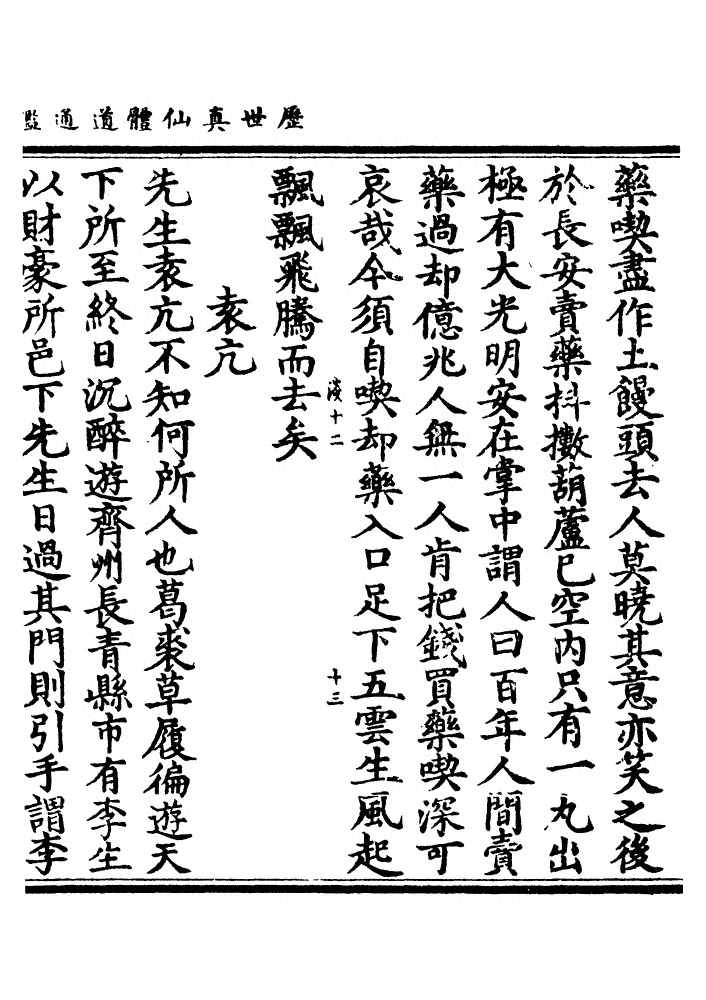 歷世真仙體道通鑑
藥喫盡作土饅頭去人莫曉其意亦笑之後
於長安賣藥抖擻葫蘆已空內只有一丸出
極有大光明安在掌中謂人曰百年人間賣
藥過却億兆人無一人肯把錢買藥喫深可
哀哉今須自喫却藥入口足下五雲生風起
淡十二
十三
飄飄飛騰而去矣
袁亢
先生袁亢不知何所人也葛裘草履徧遊天
下所至終日沉醉遊齊州長青縣市有李生
以財豪所邑下先生日過其門則引手謂李